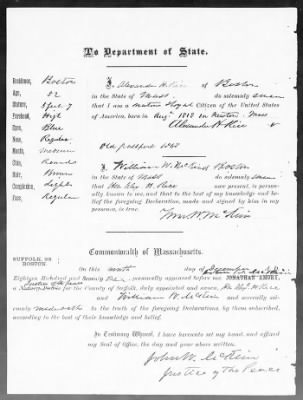 To Department of State.
Residence, Boston
Age, 52
Stature, 5 feet 7
Forehead, High
Eyes, Blue
Nose, Regular
Mouth, medium
Chin, Round
Hair, Brown
Complexion, Light
Face, Regular
I, Alexander H. Rice of Boston
in the State of Mass do solemnly swear
that I am a native & loyal Citizen of the United States
of America, born in Aug 1818 in Newton Mass
Alexander H. Rice
Old passport
I, William W. of Boston
in the State of Mass do solemnly swear
that Hon Alex H. Rice are present, is personally
known to me, and that to the best of my knowledge and belief
the foregoing Declaration, made and signed by him in my
presence, is true.
Commonwealth of Massachusetts.
SUFFOLK, SS.
BOSTON.
On this ninth day of December
Eighteen Hundred and Seventy personally appeared before me JONATHAN AMORY,
Justice of the Peace
a Notary Public for the County of Suffolk, duly appointed and sworn, Alex H. Rice
and William W. and severally
made oath to the truth of the foregoing Declarations, by them subscribed,
according to the best of their knowledge and belief.
In Testimony Whereof, I have hereunto set my hand, and
affixed my Seal of Office, the day and year above written.
John W.
Justice of the Peace